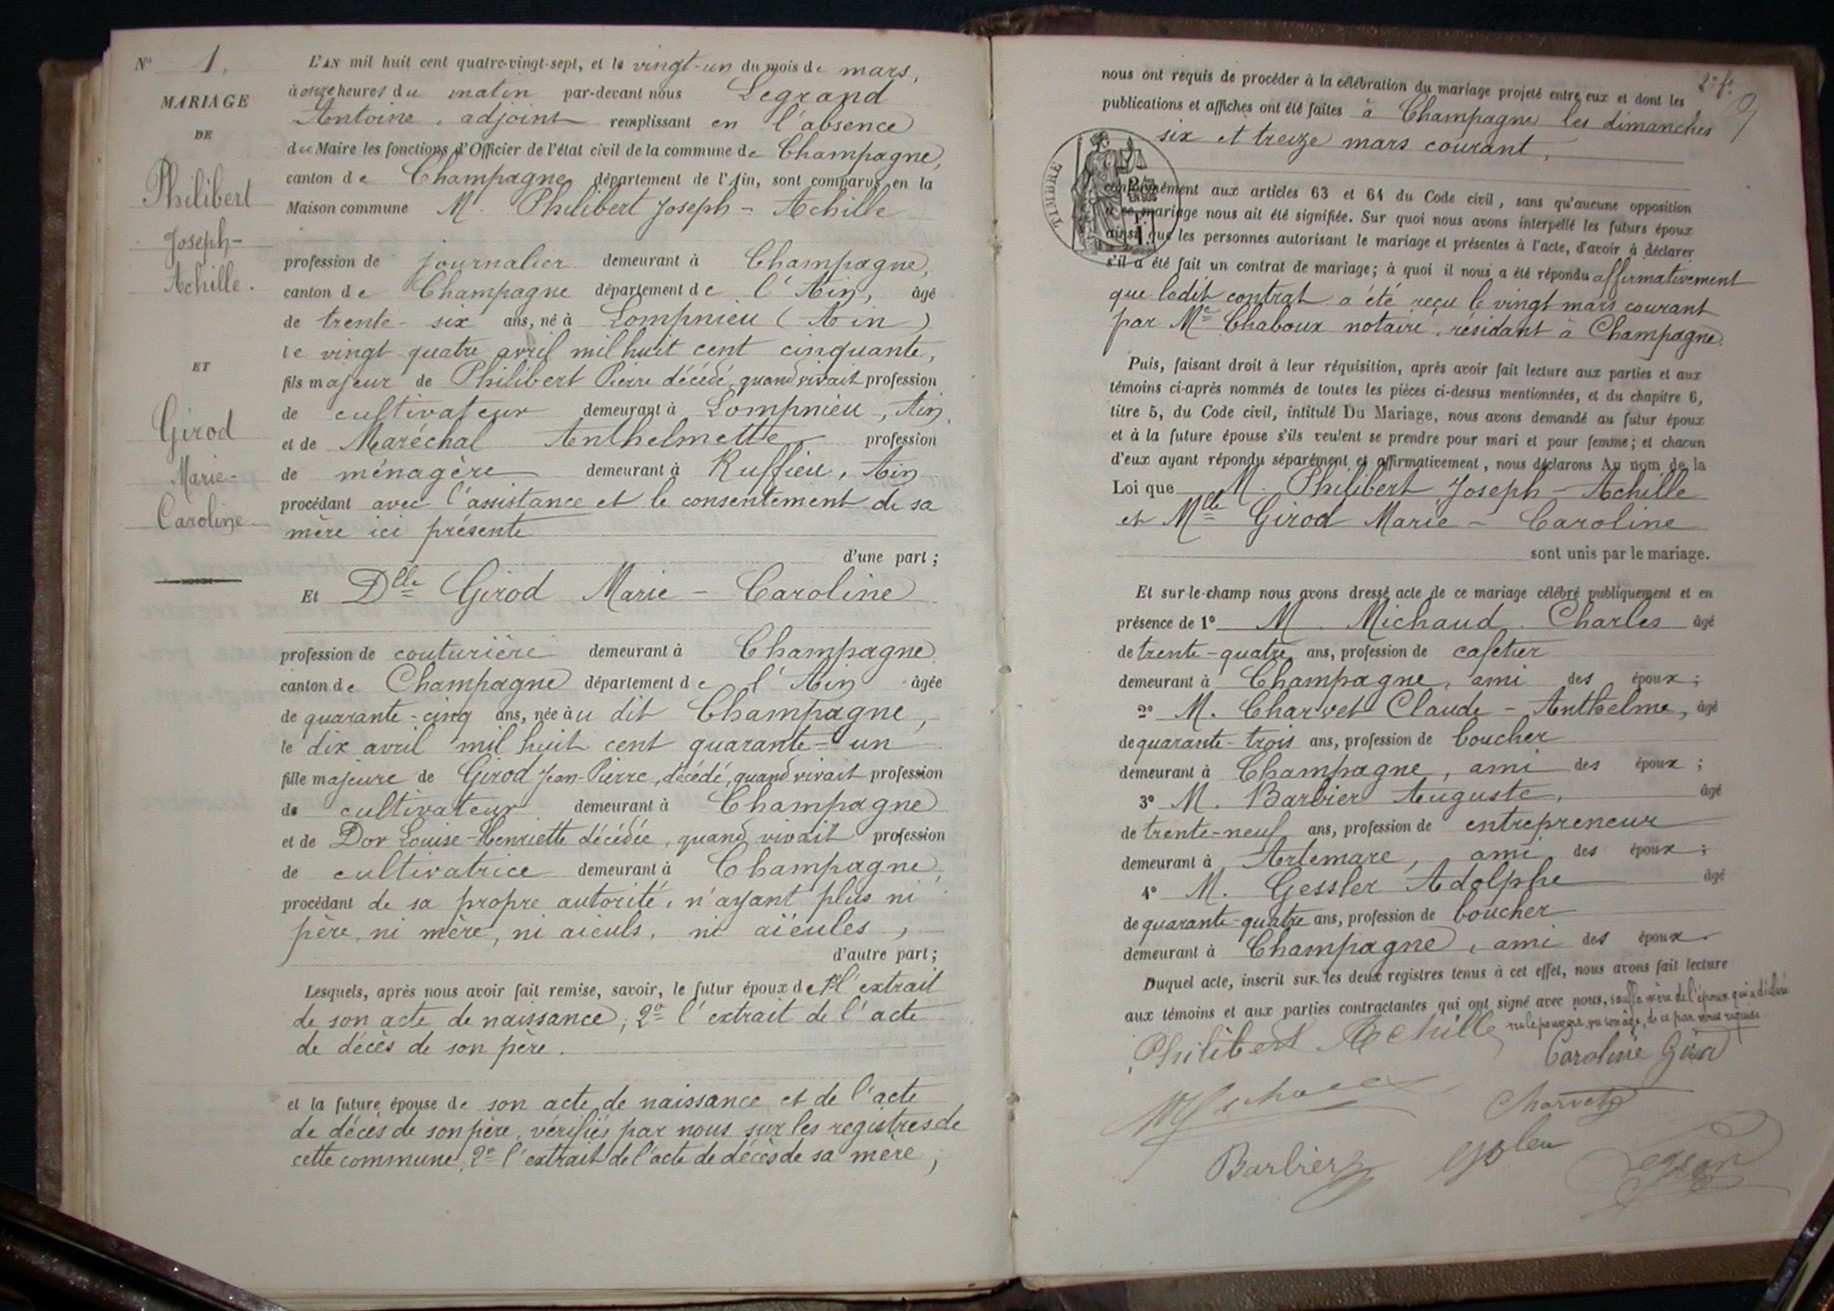 N° 1.
MARIAGE
DE
Philibert
Joseph-
Achille.
ET
Girod
Marie-
Caroline
L'AN mil huit cent quatre-vingt-sept, et le vingt-un du mois de mars,
à onze heures du matin par-devant nous Legrand
Antoine, adjoint remplissant en l'absence
du Maire les fonctions d'Officier de l'état civil de la commune de Champagne,
canton de Champagne département de l'Ain, sont comparus en la
Maison commune M. Philibert Joseph-Achille
profession de journalier demeurant à Champagne,
canton de Champagne département de l'Ain, âgé
de trente-six ans, né à Lompnieu (Ain)
le vingt quatre avril mil huit cent cinquante,
fils majeur de Philibert Pierre décédé, quand vivait profession
de cultivateur demeurant à Lompnieu, Ain
et de Maréchal Anthelmette profession
de ménagère demeurant à Ruffieu, Ain
procédant avec l'assistance et le consentement de sa
mère ici présente
d'une part;
Et Dlle Girod Marie-Caroline
profession de couturière demeurant à Champagne
canton de Champagne département de l'Ain âgée
de quarante-cinq ans, née au dit Champagne,
le dix avril mil huit cent quarante-un
fille majeure de Girod Jean-Pierre, décédé, quand vivait profession
de cultivateur demeurant à Champagne
et de Dor Louise-Henriette décédée, quand vivait profession
de cultivatrice demeurant à Champagne,
procédant de sa propre autorité, n'ayant plus ni
père, ni mère, ni aieuls, ni aïeules,
d'autre part;
Lesquels, après nous avoir fait remise, savoir, le futur époux de l'extrait
de son acte de naissance; 2° l'extrait de l'acte
de décès de son père.
et la future épouse de son acte de naissance et de l'acte
de décès de son père, vérifiés par nous sur les registres de
cette commune, 2° l'extrait de l'acte de décès de sa mère;
2e f.
nous ont requis de procéder à la célébration du mariage projeté entre eux et dont les
publications et affiches ont été faites à Champagne les dimanches
six et treize mars courant,
TIMBRE
conformément aux articles 63 et 64 du Code civil, sans qu'aucune opposition
à ce mariage nous ait été signifiée. Sur quoi nous avons interpellé les futurs époux
ainsi que les personnes autorisant le mariage et présentes à l'acte, d'avoir à déclarer
s'il a été fait un contrat de mariage; à quoi il nous a été répondu affirmativement
que ledit contrat a été reçu le vingt mars courant
par Me Chaboux notaire, résidant à Champagne.
Puis, faisant droit à leur réquisition, après avoir fait lecture aux parties et aux
témoins ci-après nommés de toutes les pièces ci-dessus mentionnées, et du chapitre 6,
titre 5, du Code civil, intitulé Du Mariage, nous avons demandé au futur époux
et à la future épouse s'ils veulent se prendre pour mari et pour femme; et chacun
d'eux ayant répondu séparément et affirmativement, nous déclarons Au nom de la
Loi que M. Philibert Joseph-Achille
et Mlle Girod Marie-Caroline
sont unis par le mariage.
Et sur-le-champ nous avons dressé acte de ce mariage célébré publiquement et en
présence de 1° M. Michaud Charles âgé
de trente-quatre ans, profession de cafetier
demeurant à Champagne, ami des époux;
2° M. Charvet Claude-Anthelme, âgé
de quarante-trois ans, profession de boucher
demeurant à Champagne, ami des époux;
3° M. Barbier Auguste, âgé
de trente-neuf ans, profession de entrepreneur
demeurant à Artemare, ami des époux;
4° M. Gessler Adolphe âgé
de quarante-quatre ans, profession de boucher
demeurant à Champagne, ami des époux.
Duquel acte, inscrit sur les deux registres tenus à cet effet, nous avons fait lecture
aux témoins et aux parties contractantes qui ont signé avec nous, sauf la mère de l'époux qui a déclaré
ne le pouvoir, vu son âge, de ce par nous requise
Philibert Achille
Caroline Girod
Charvet
Barbier